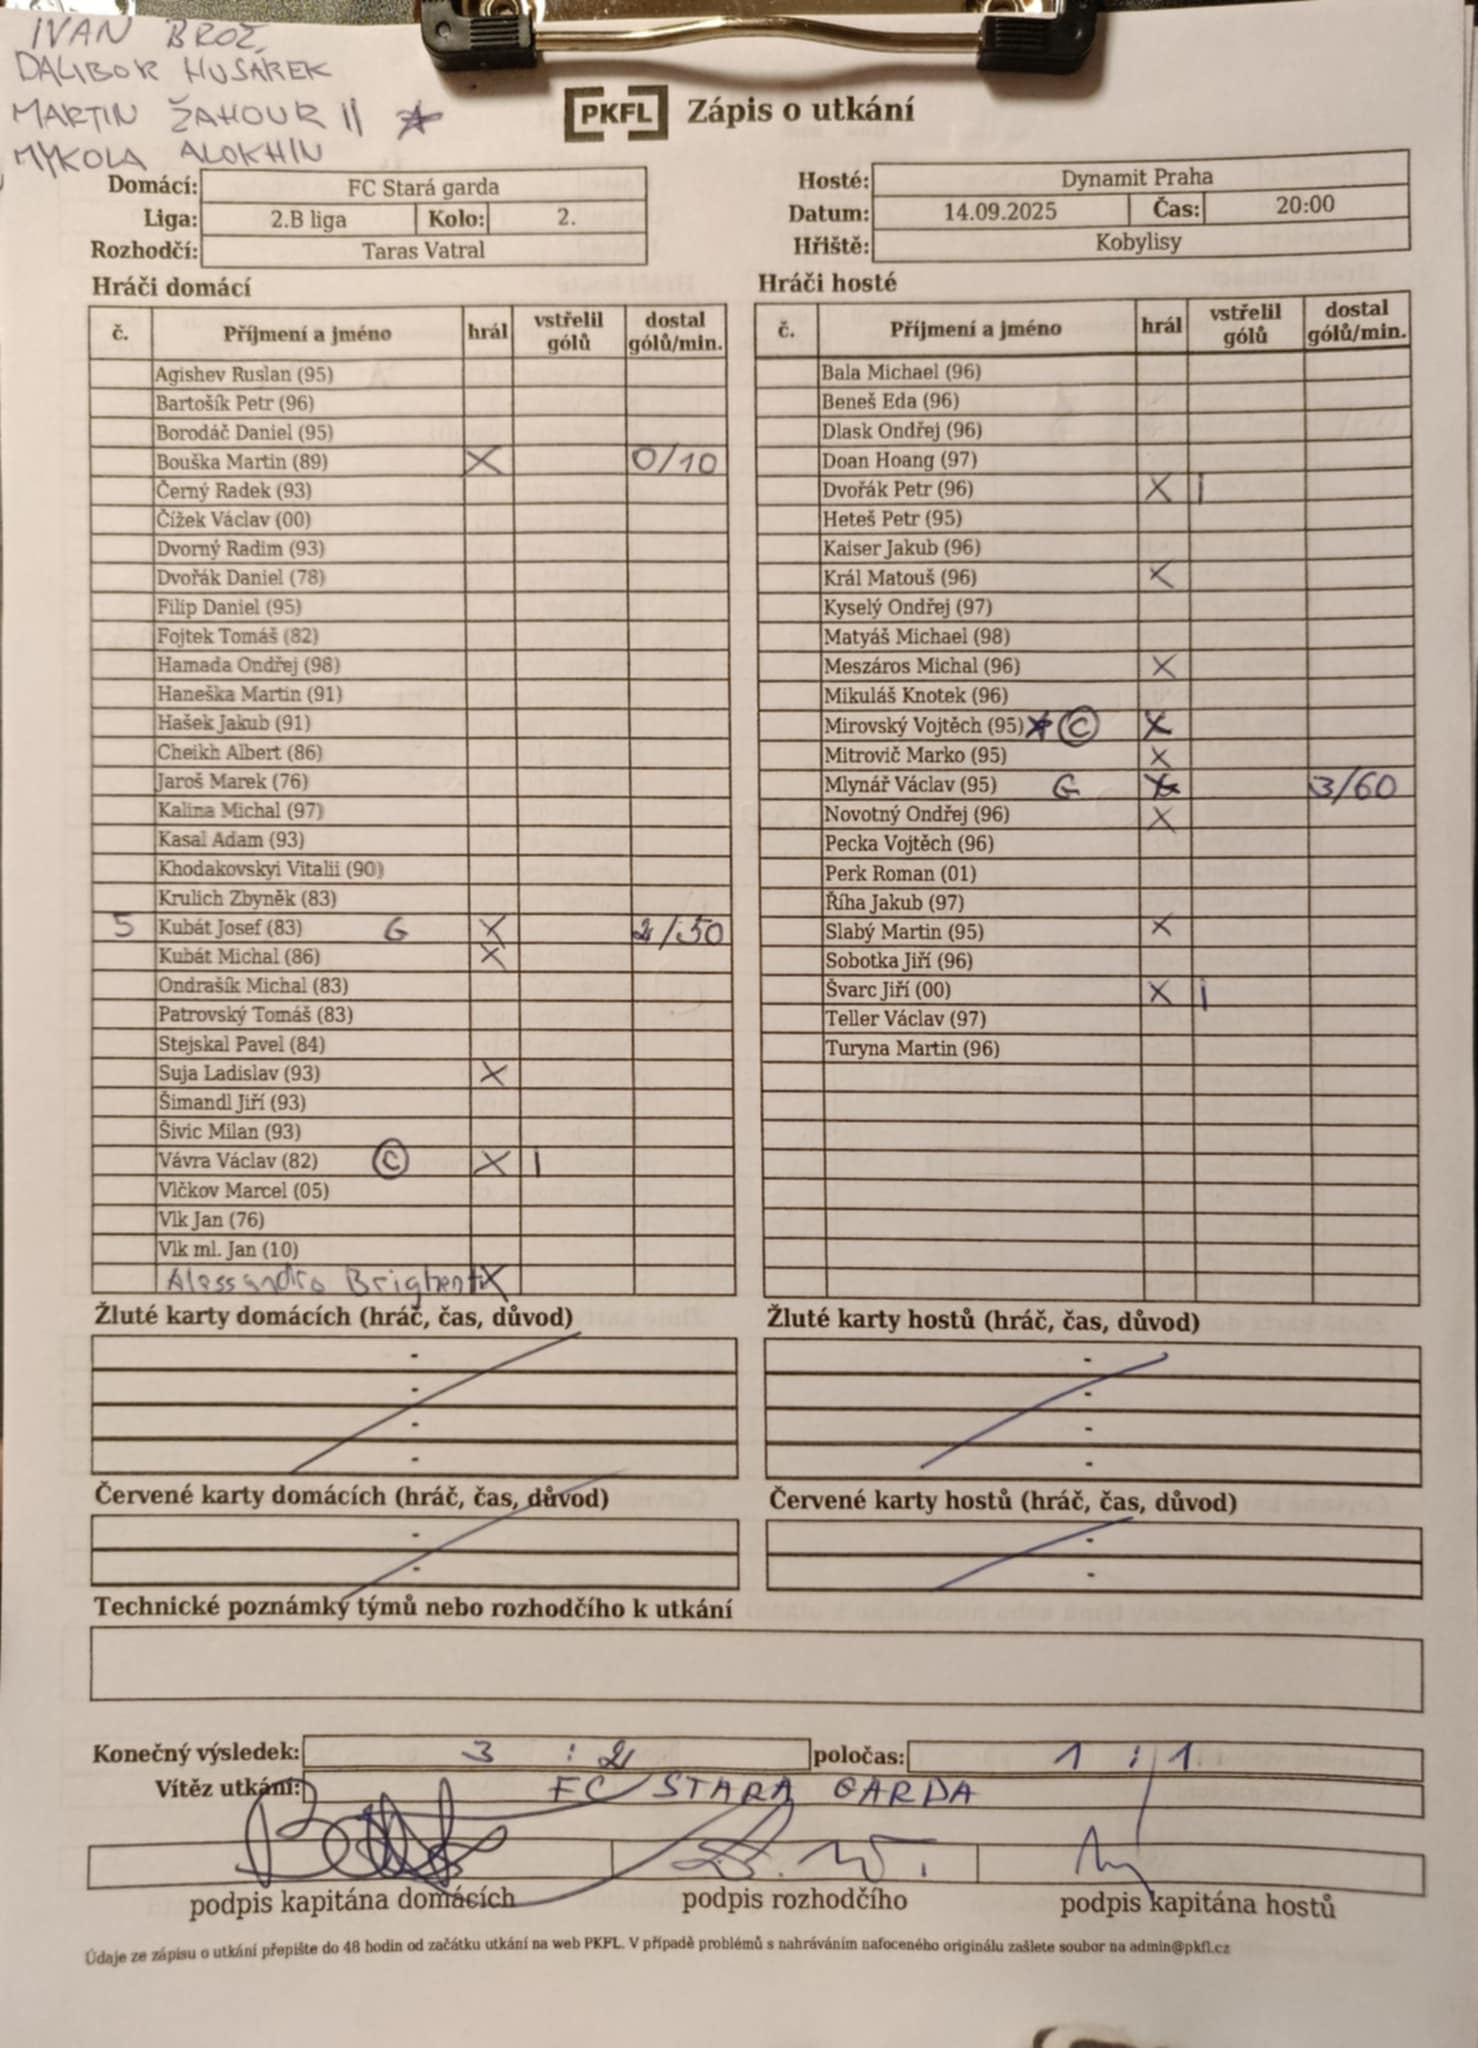 IVAN BROŽ
DALIBOR HUSÁREK
MARTIN ŽAHOUR ||
MYKOLA ALOKHIN
PKFL Zápis o utkání
Domácí: FC Stará garda
Liga: 2.B liga Kolo: 2.
Rozhodčí: Taras Vatral
Hosté: Dynamit Praha
Datum: 14.09.2025 Čas: 20:00
Hřiště: Kobylisy
Hráči domácí
č. Příjmení a jméno hrál vstřelil gólů dostal gólů/min.
Agishev Ruslan (95)
Bartošík Petr (96)
Borodáč Daniel (95)
Bouška Martin (89) X 0/10
Černý Radek (93)
Čížek Václav (00)
Dvorný Radim (93)
Dvořák Daniel (78)
Filip Daniel (95)
Fojtek Tomáš (82)
Hamada Ondřej (98)
Haneška Martin (91)
Hašek Jakub (91)
Cheikh Albert (86)
Jaroš Marek (76)
Kalina Michal (97)
Kasal Adam (93)
Khodakovskyi Vitalii (90)
Krulich Zbyněk (83)
5 Kubát Josef (83) G X 2/50
Kubát Michal (86) X
Ondrašík Michal (83)
Patrovský Tomáš (83)
Stejskal Pavel (84)
Suja Ladislav (93) X
Šimandl Jiří (93)
Šivic Milan (93)
Vávra Václav (82) C X |
Vlčkov Marcel (05)
Vlk Jan (76)
Vlk ml. Jan (10)
Alessandro Brighenti X
Hráči hosté
č. Příjmení a jméno hrál vstřelil gólů dostal gólů/min.
Bala Michael (96)
Beneš Eda (96)
Dlask Ondřej (96)
Doan Hoang (97)
Dvořák Petr (96) X |
Heteš Petr (95)
Kaiser Jakub (96)
Král Matouš (96) X
Kyselý Ondřej (97)
Matyáš Michael (98)
Meszáros Michal (96) X
Mikuláš Knotek (96)
Mirovský Vojtěch (95) C X
Mitrovič Marko (95) X
Mlynář Václav (95) G X 3/60
Novotný Ondřej (96) X
Pecka Vojtěch (96)
Perk Roman (01)
Říha Jakub (97)
Slabý Martin (95) X
Sobotka Jiří (96)
Švarc Jiří (00) X |
Teller Václav (97)
Turyna Martin (96)
Žluté karty domácích (hráč, čas, důvod)
-
-
-
-
Žluté karty hostů (hráč, čas, důvod)
-
-
-
-
Červené karty domácích (hráč, čas, důvod)
-
-
Červené karty hostů (hráč, čas, důvod)
-
-
Technické poznámky týmů nebo rozhodčího k utkání
Konečný výsledek: 3 : 2 poločas: 1 : 1
Vítěz utkání: FC STARA GARDA
podpis kapitána domácích podpis rozhodčího podpis kapitána hostů
Údaje ze zápisu o utkání přepište do 48 hodin od začátku utkání na web PKFL. V případě problémů s nahráváním nafoceného originálu zašlete soubor na admin@pkfl.cz